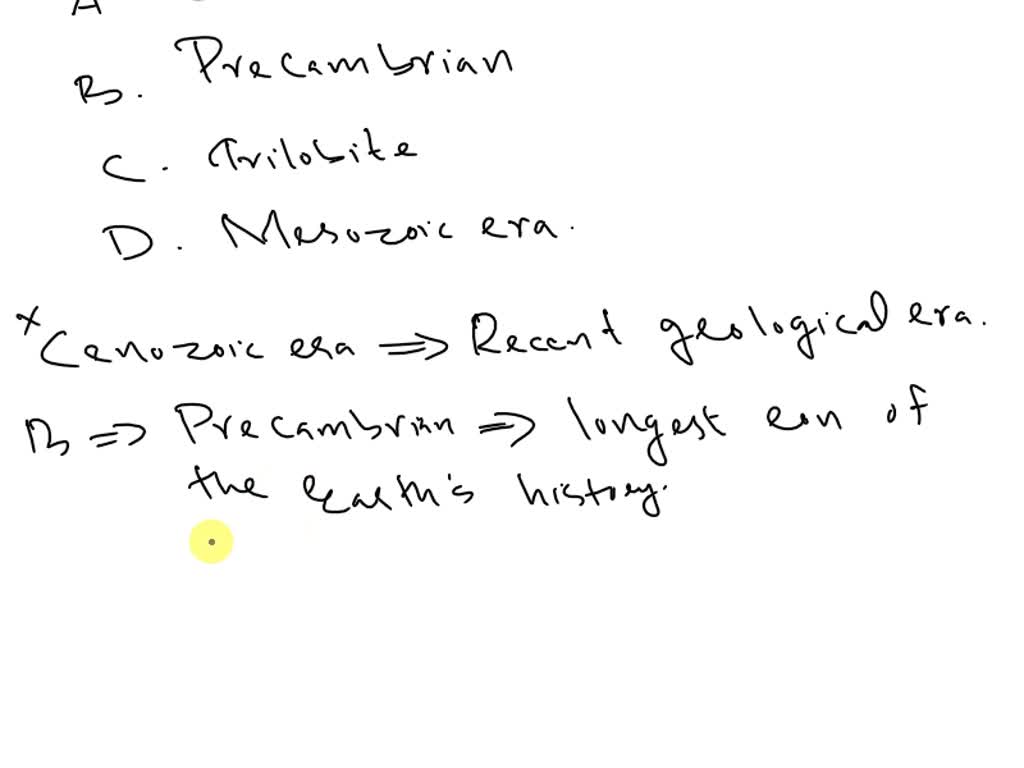 A
B. Precambrian
C. Trilobite
D. Mesozoic era.
x Cenozoic era ⇒ Recent geological era.
B ⇒ Precambrian ⇒ longest eon of
the Earth's history.